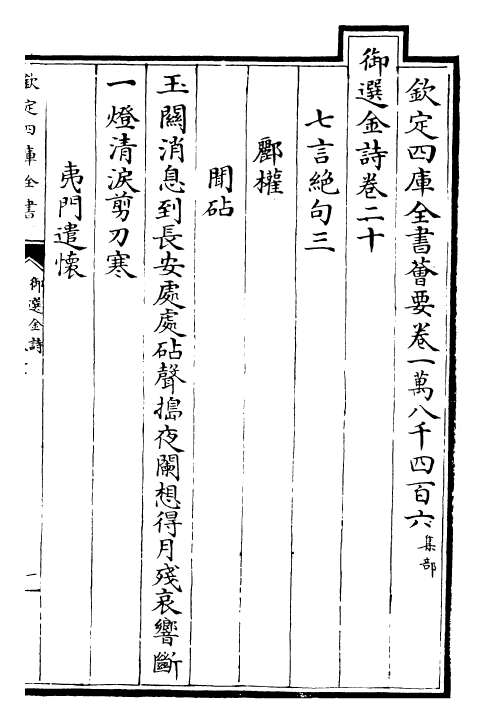 欽定四庫全書薈要卷一萬八千四百六 集部
御選金詩卷二十
七言絶句三
酈權
聞砧
玉關消息到長安處處砧聲搗夜闌想得月殘哀響斷
一燈清淚剪刀寒
夷門遣懷
欽定四庫全書
御選金詩